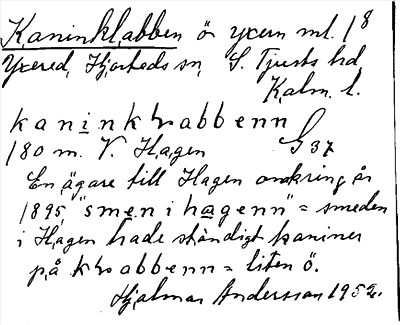 Kaninklabben ö yxern ml. 18
Yxered, Hjorteds sn, S. Tjusts hd
Kalm. l.
kaninklabbenn
180 m. V. Hagen G 37
En ägare till Hagen omkring år
1895, "smen i hagenn" = smeden
i Hagen hade ständigt kaniner
på klabbenn = liten ö.
Hjalmar Andersson 1952.